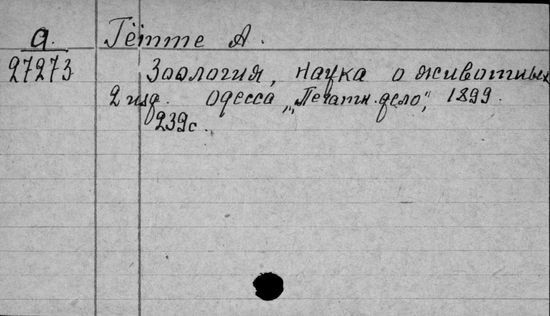 а. Гётте А.
27273 Зоология, наука о животных
2 изд. Одесса „Печатн. дело", 1899.
239 с.